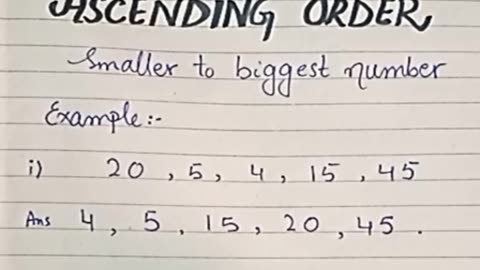 ASCENDING ORDER,
Smaller to biggest number
Example:-
i) 20 , 5 , 4 , 15 , 45
Ans 4 , 5 , 15 , 20 , 45 .